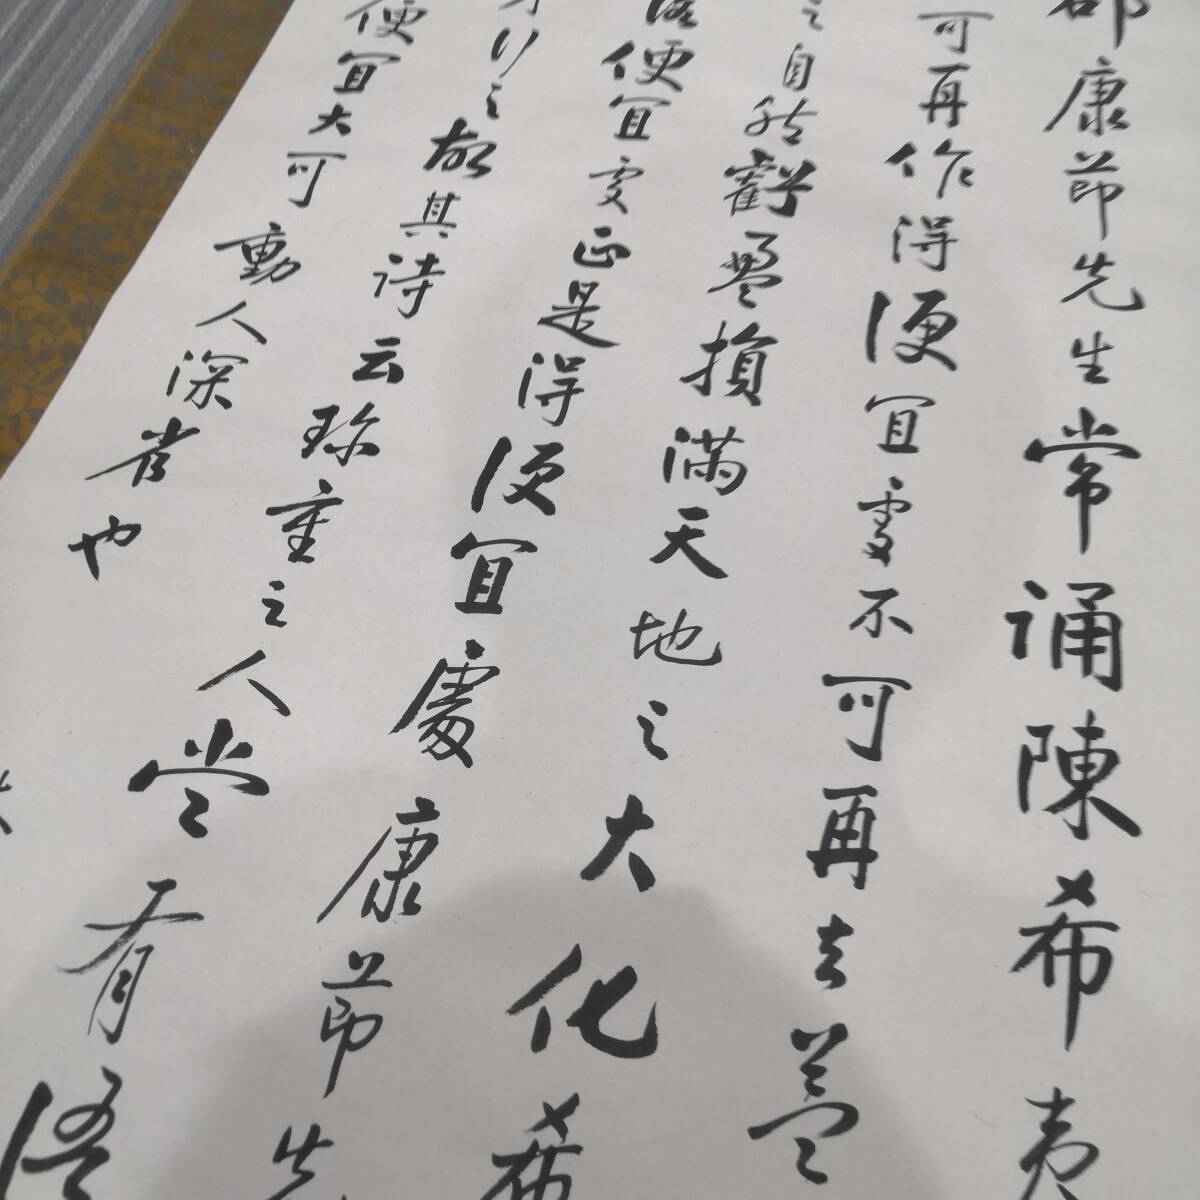 邵康節先生常誦陳希夷
可再作得便宜處不可再去蓋
之自然虧盈損滿天地之大化希
落便宜處正是得便宜處康節先
行之故其詩云珍重之人嘗有悟
便宜大可動人深省也